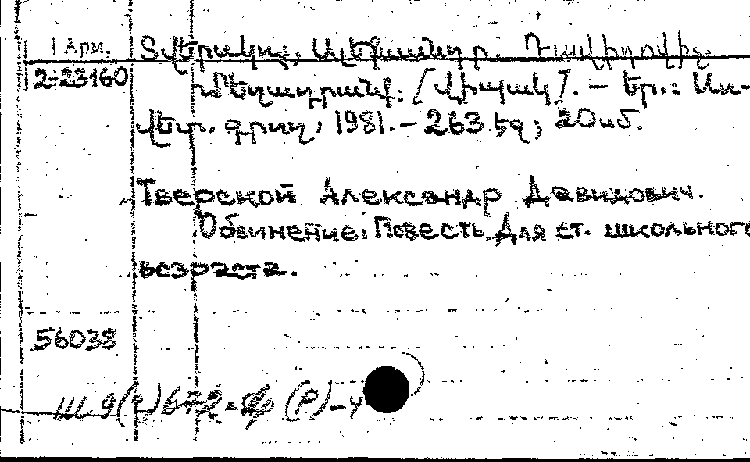 1 Арм.
2-23160
Տվերսկոյ, Ալեքսանդր Դավիդովիչ.
Մեղադրանք: [Վիպակ]. – Եր.: Սո-
վետ. գրող, 1981. – 263 էջ; 20 սմ.
Тверской Александр Давидович.
Обвинение: Повесть для ст. школьного
возраста.
56038